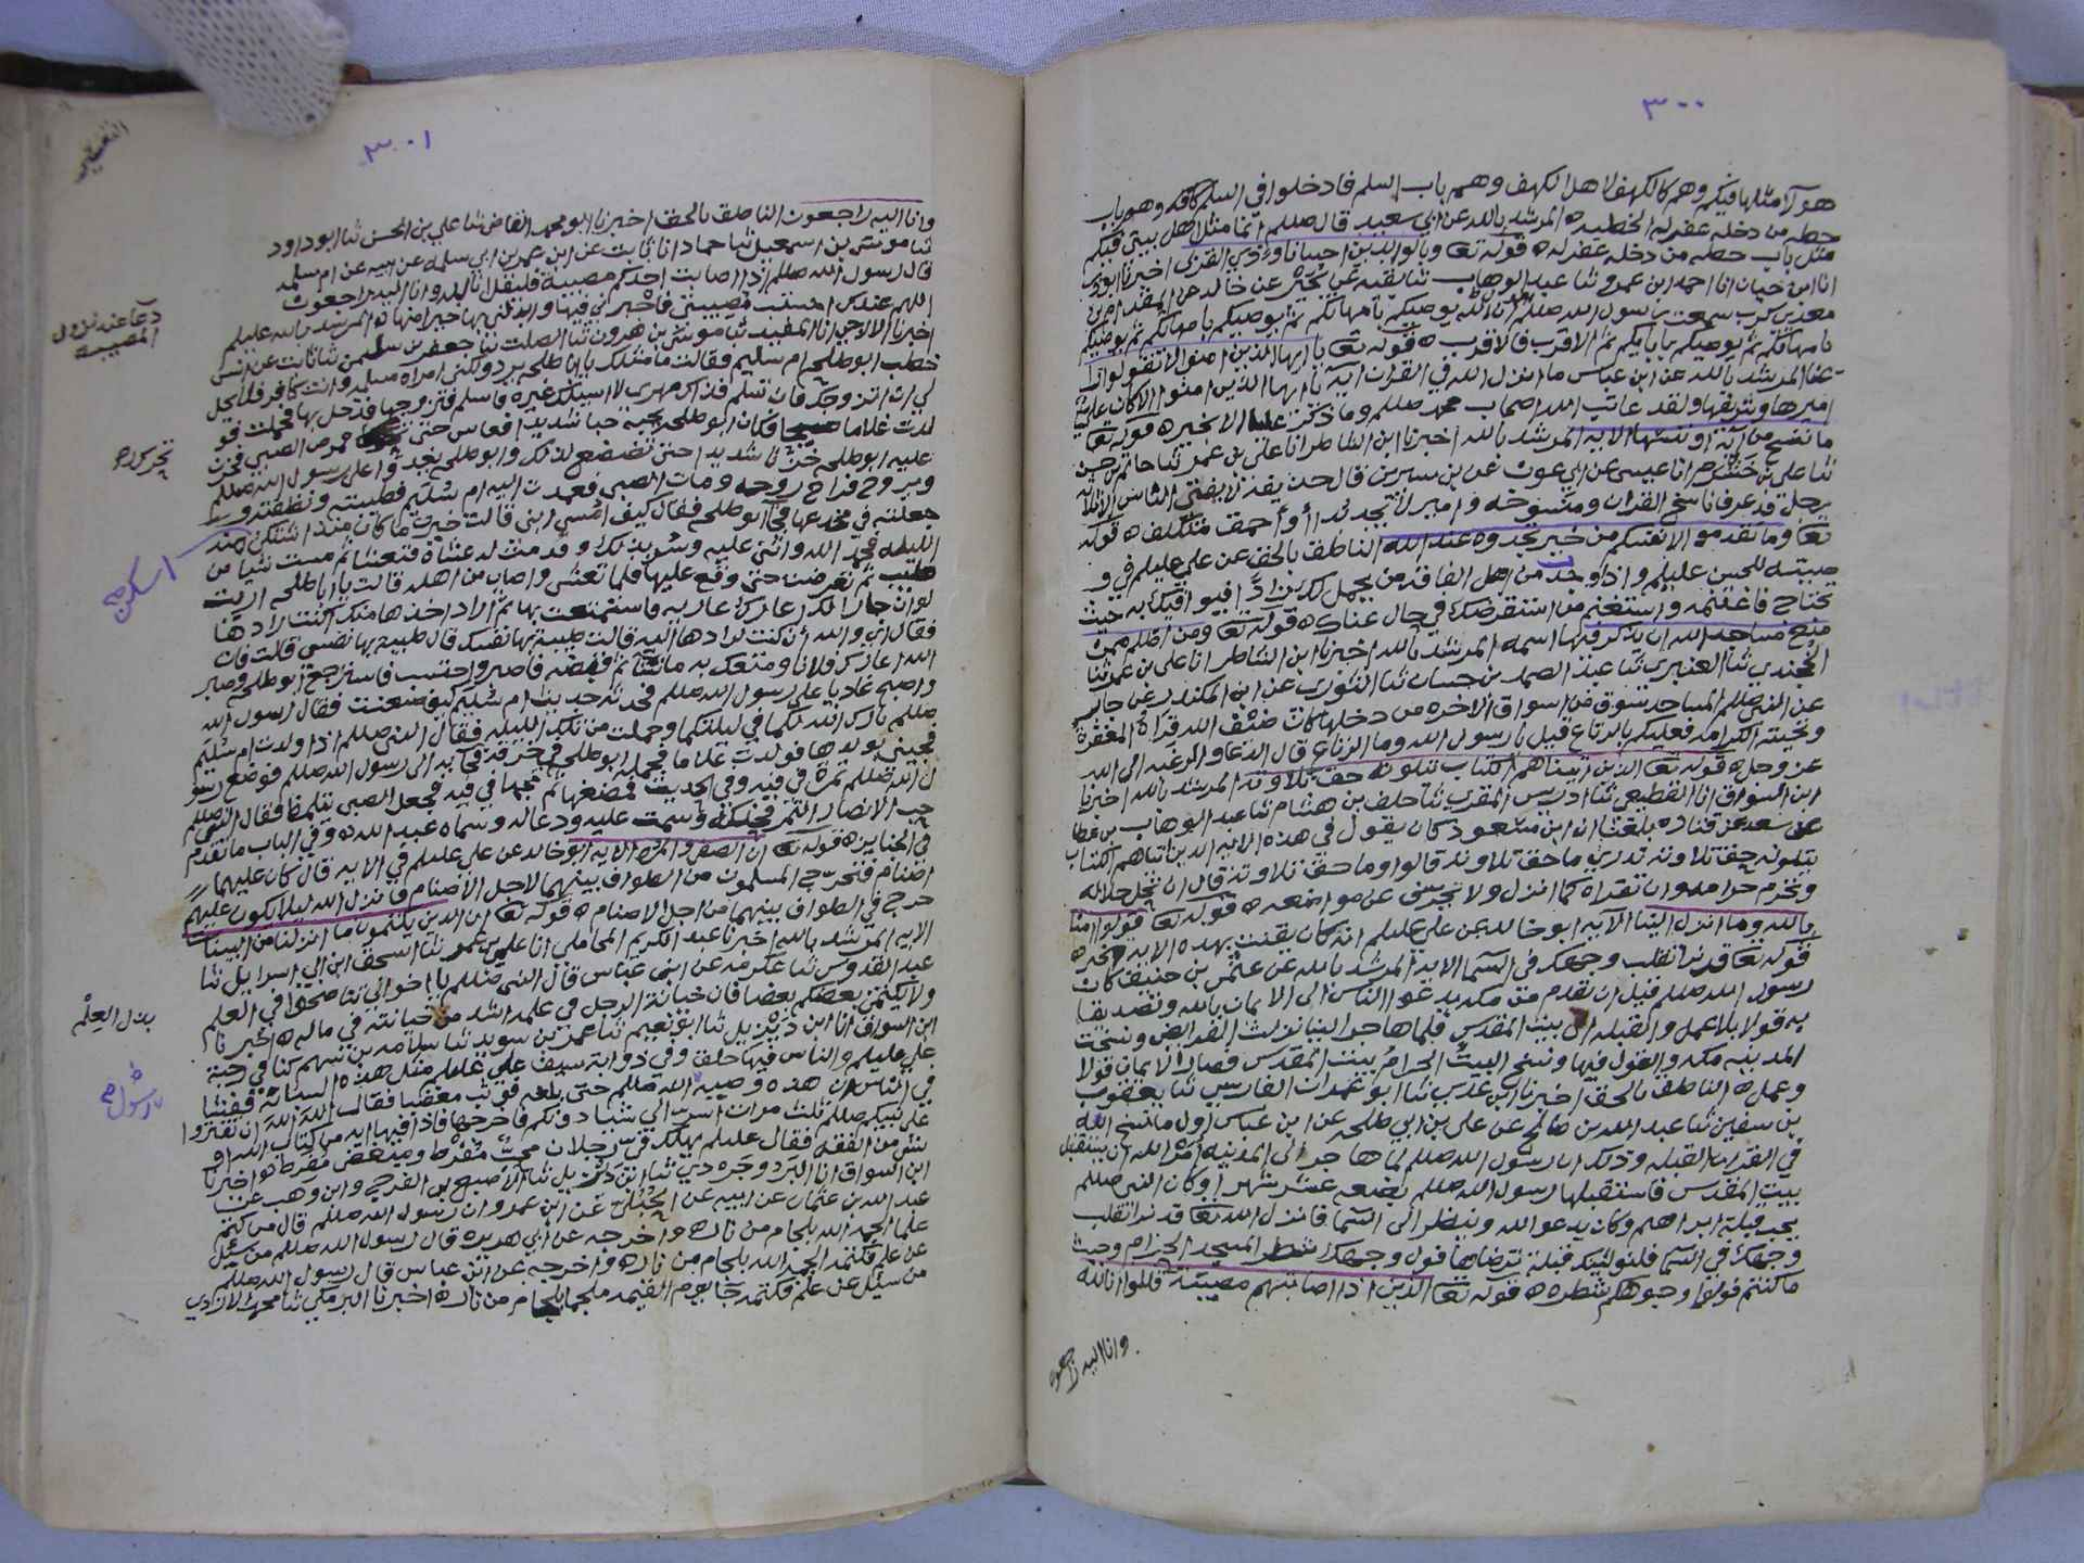 ٣٠٠
هؤلا مثلها فيكم وهم كالكهف لاهل الكهف وهم باب السلم فادخلوا في السلم كافه وهو باب
حطه من دخله غفر له الخطيه ه المرشد بالله عن ابي سعيد قال صللم انما مثل اهل بيتي فيكم
مثل باب حطه من دخله غفر له ه قوله تعا وبالوالدين احسانا وذي القربى اخبرنا
انا ابن حيان انا احمد ابن عمرو ثنا عبد الوهاب ثنا بقيه عن بحير عن خالد عن المقدام بن
معدي كرب سمعت رسول الله صللم ان الله يوصيكم بامهاتكم ثم يوصيكم بامهاتكم ثم يوصيكم
بامهاتكم ثم يوصيكم بابايكم ثم الاقرب فالاقرب ه قوله تعا يا ايها الذين امنوا لا تقولوا
المرشد بالله عن ابن عباس ما انزل الله في القران اية يا ايها الذين امنوا الا كان علي
اميرها وشريفها ولقد عاتب الله اصحاب محمد صللم وما ذكر عليا الا بخير ه قوله تعا
ما ننسخ من آية او ننسها الايه المرشد بالله اخبرنا ابن الشاطر انا علي بن عمر ثنا حاتم بن حسن
ثنا علي بن خشرم انا عيسى عن ابن عون عن بن سيرين قال حذيفه انما يفتي الناس
رجل قد عرف ناسخ القران ومنسوخه و امير لا يجد بدا او أحمق متكلف ه قوله
تعا وما تقدموا لانفسكم من خير تجدوه عند الله الناطق بالحق عن علي عليلم في و
صيته للحسن عليلم واذا وجدت من اهل الفاقه من يحمل لك زادا فيوافيك به حيث
تحتاج فاغتنمه واستغنم من استقرضك في حال غناك ه قوله تعا ومن اظلم ممن
منع مساجد الله ان يذكر فيها اسمه المرشد بالله اخبرنا ابن الشاطر انا علي بن عمر ثنا
الجندي ثنا العنبري ثنا عبد الصمد بن حسان ثنا الثوري عن ابن المنكدر عن جابر
عن النبي صللم المساجد سوق من اسواق الاخره من دخلها كان ضيف الله قراه المغفرة
وتحيته الكرامه فعليكم بالرتاع قيل يا رسول الله وما الرتاع قال الدعا والرغبه الى الله
عز وجل ه قوله تعا الذين اتيناهم الكتاب يتلونه حق تلاوته المرشد بالله اخبرنا
ابن السواق انا القطيعي ثنا ادريس المقري ثنا خلف بن هشام ثنا عبد الوهاب بن عطا
عن سعيد عن قتاده بلغنا ان ابن مسعود كان يقول في هذه الايه الذين اتيناهم الكتاب
يتلونه حق تلاوته تدري ما حق تلاوته قالوا وما حق تلاوته قال ان تحل حلاله
وتحرم حرامه وان تقراه كما انزل ولا تحرف عن مواضعه ه قوله تعا قولوا امنا
بالله وما انزل الينا الايه ابو خالد عن علي عليلم انه كان يقنت بهذه الايه
قوله تعا قد نرا تقلب وجهك في السما الايه المرشد بالله عن عثمن بن حنيف كان
رسول الله صللم قبل ان يقدم من مكه يدعوا الناس الى الايمان بالله وتصديقا
به قولا بلا عمل والقبله الى بيت المقدس فلما هاجر الينا نزلت الفرايض ونسخت
المدينه مكه والقول فيها ونسخ البيت الحرام بيت المقدس فصار الايمان قولا
وعملا ه الناطق بالحق اخبرنا ابن عدي ثنا ابو عمران الفارسي ثنا يعقوب
بن سفين ثنا عبد الله بن صالح عن علي بن ابي طلحه عن ابن عباس اول ما نسخ الله
في القران القبله وذلك ان رسول الله صللم لما هاجر الى المدينه امره الله ان يستقبل
بيت المقدس فاستقبلها رسول الله صللم بضعه عشر شهرا وكان النبي صللم
يحب قبلة ابراهيم وكان يدعو الله وينظر الى السما فانزل الله تعا قد نرا تقلب
وجهك في السما فلنولينك قبلة ترضاها فول وجهك شطر المسجد الحرام وحيث
ما كنتم فولوا وجوهكم شطره ه قوله تعا الذين اذا اصابتهم مصيبة قالوا انا لله
وانا اليه راجعون
٣٠١
وانا اليه راجعون الناطق بالحق اخبرنا ابو محمد القاضي ثنا علي بن الحسن ثنا ابو داود
ثنا موسى بن اسمعيل ثنا حماد انا ثابت عن ابن عمر بن ابي سلمه عن ابيه عن ام سلمه
قال رسول الله صللم اذا اصابت احدكم مصيبة فليقل انا لله وانا اليه راجعون
اللهم عندك احتسب مصيبتي فاجرني فيها وابدلني بها خيرا منها ه المرشد بالله عليلم
اخبرنا الازجي انا المفيد ثنا موسى بن هرون ثنا الصلت ثنا جعفر بن سليمن ثنا ثابت عن انس
خطب ابو طلحه ام سليم فقالت ما مثلك يا ابا طلحه يرد ولكني امراه مسلمه وانت كافر فلا يحل
لي ان اتزوجك فان تسلم فذاك مهري لا اسئلك غيره فاسلم فتزوجها فدخل بها فحملت فو
لدت غلاما صبيحا فكان ابو طلحه يحبه حبا شديدا فعاش حتى تحرك فمرض الصبي فحزن
عليه ابو طلحه حزنا شديدا حتى تضعضع لذلك وابو طلحه يغدوا على رسول الله صللم
ويروح فراح روحه ومات الصبي فعمدت اليه ام سليم فطيبته ونظفته و
جعلته في مخدعها فجآ ابو طلحه فقال كيف امسى ابني قالت خير ما كان منذ اشتكى منه
الليله فحمد الله واثنى عليه وسر بذلك وقدمت له عشاه فتعشا ثم مست شيا من
طيب ثم تعرضت حتى وقع عليها فلما تعشى واصاب من اهله قالت يا ابا طلحه ارايت
لو ان جارا لك اعارك عاريه فاستمتعت بها ثم اراد اخذها منك اكنت رادها
فقال اي والله ان كنت لرادها اليه قالت طيبة بها نفسك قال طيبه بها نفسي قالت فان
الله اعارك فلانا ومتعك به ما شآ ثم قبضه فاصبر واحتسب فاسترجع ابو طلحه وصبر
واصبح غاديا على رسول الله صللم فحدثه حديث ام سليم كيف صنعت فقال رسول الله
صللم بارك الله لكما في ليلتكما وحملت من تلك الليله فقال النبي صللم اذا ولدت ام سليم
فجيني بولدها فولدت غلاما فحمله ابو طلحه في خرقة فجا به الى رسول الله صللم فوضع رسو
ل الله صللم تمرة في فيه وفي الحديث فمضغها ثم مجها في فيه فجعل الصبي يتلمظ فقال النبي صللم
حب الانصار التمر فحنكه وسمت عليه ودعا له وسماه عبد الله ه وفي الباب ما تقدم
في الجنايز ه قوله تعا ان الصفا والمروه الايه ابو خالد عن علي عليلم في الايه قال كان عليهما
اصنام فتحرج المسلمون من الطواف بينهما لاجل الاصنام فانزل الله ليلا يكون عليهم
حرج في الطواف بينهما من اجل الاصنام ه قوله تعا ان الذين يكتمون ما انزلنا من البينات
الايه المرشد بالله اخبرنا عبد الكريم المحاملي انا علي بن عمر ثنا اسحق ابن ابي اسرايل ثنا
عبد القدوس ثنا عكرمه عن ابن عباس قال النبي صللم يا اخواني تناصحوا في العلم
ولا يكتمن بعضكم بعضا فان خيانة الرجل في علمه اشد من خيانته في ماله ه اخبرنا
ابن السواق انا ابن ديزيل ثنا ابو نعيم ثنا عمر بن سويد ثنا سلامه بن سهم كنا في رحبة
علي عليلم والناس فيها حلق وفي ذوابة سيف علي عليلم مثل هذه السبابة ففشا
في الناس ان هذه وصية الله صللم حتى بلغه فوثب مغضبا فقال الله الله ان تفتروا
على نبيكم صللم ثلث مرات اسر الي شيئا دونكم فاخرجها فاذا فيها ايه من كتاب الله او
شي من الفقه فقال عليلم يهلك في رجلان محب مفرط ومبغض مفرط ه واخبرنا
ابن السواق انا البردوجردي ثنا ابن ديزيل ثنا الاصبغ بن الفرج وابن وهب عن
عبد الله بن عثمان عن ابيه عن الحبلي عن ابن عمرو ان رسول الله صللم قال من كتم
علما الجمه الله بلجام من نار ه واخرجه عن ابي هريره قال رسول الله صللم من سئل
عن علم فكتمه الجمه الله بلجام من نار ه واخرجه عن ابن عباس قال رسول الله صللم
من سئل عن علم فكتمه جا يوم القيمه ملجما بلجام من نار ه اخبرنا البرمكي ثنا محمد الازدي
دعآ عند نزول
المصيبه
تحرك ح
اسكن ح
بذل العلم
رسول ح